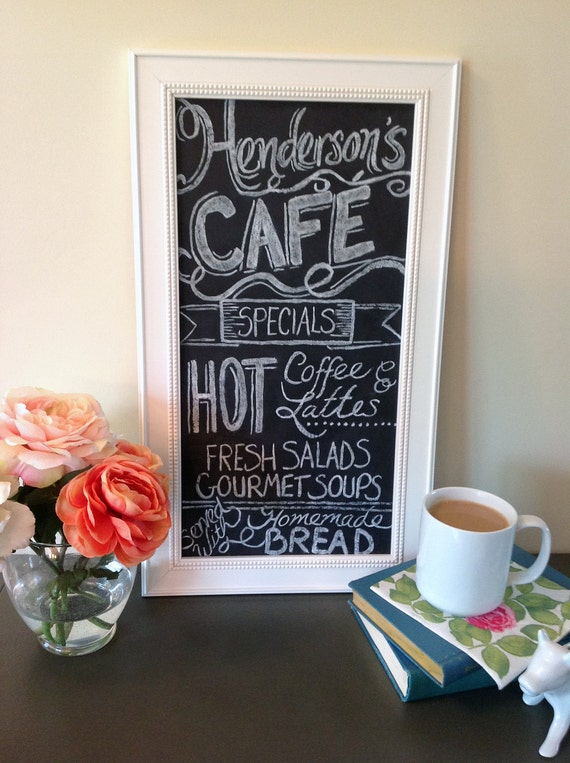 Henderson's
CAFÉ
SPECIALS
HOT Coffee &
Lattes
FRESH SALADS
GOURMET SOUPS
Served With Homemade
BREAD